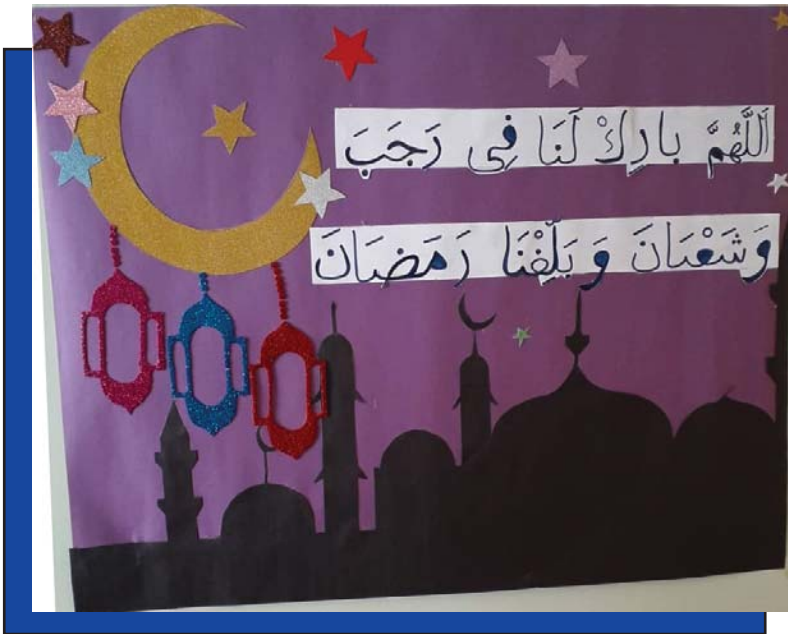 اَللَّهُمَّ بارِكْ لَنَا فِى رَجَبَ
وَشَعْبَانَ وَبَلِّغْنَا رَمَضَانَ